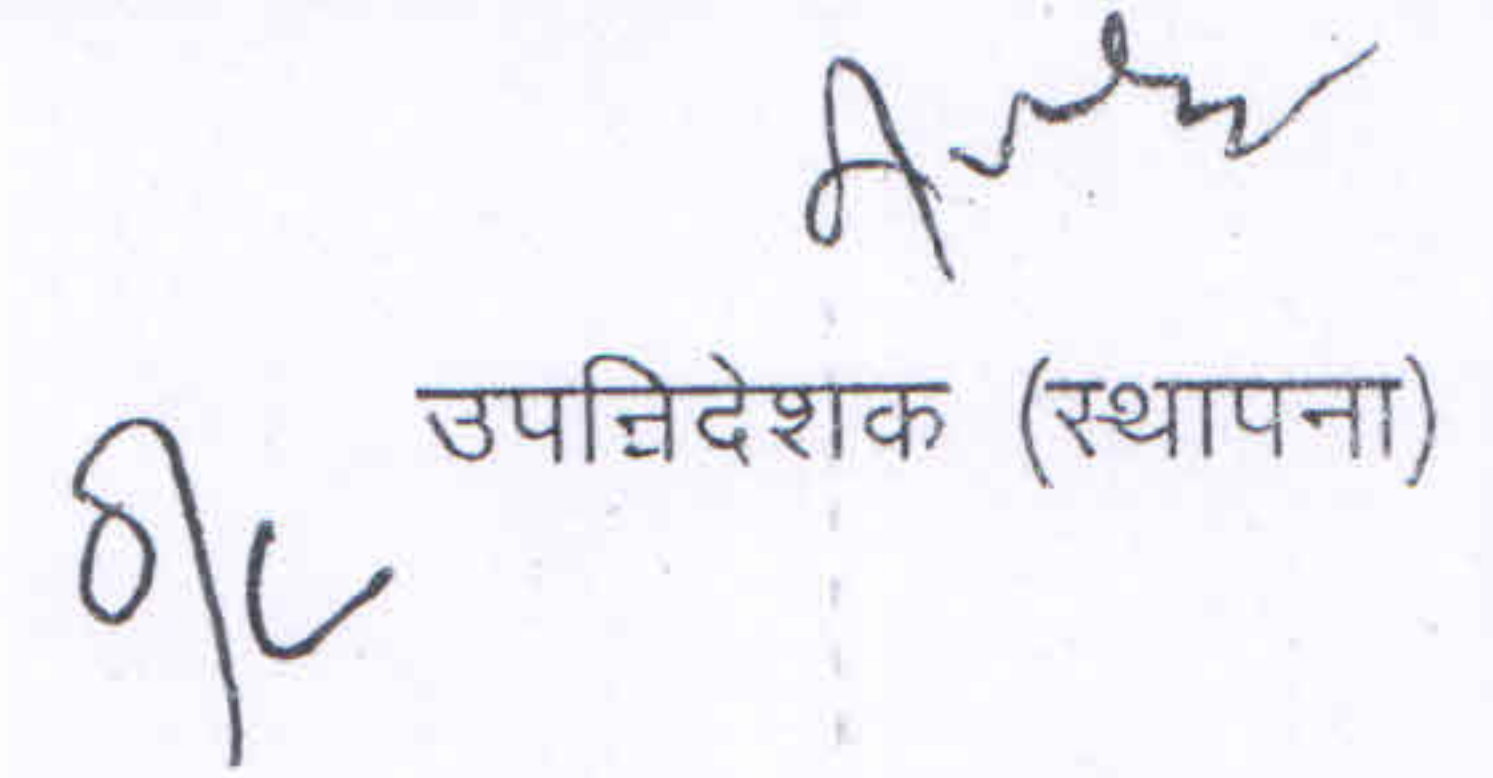 उपनिदेशक (स्थापना)
o/c